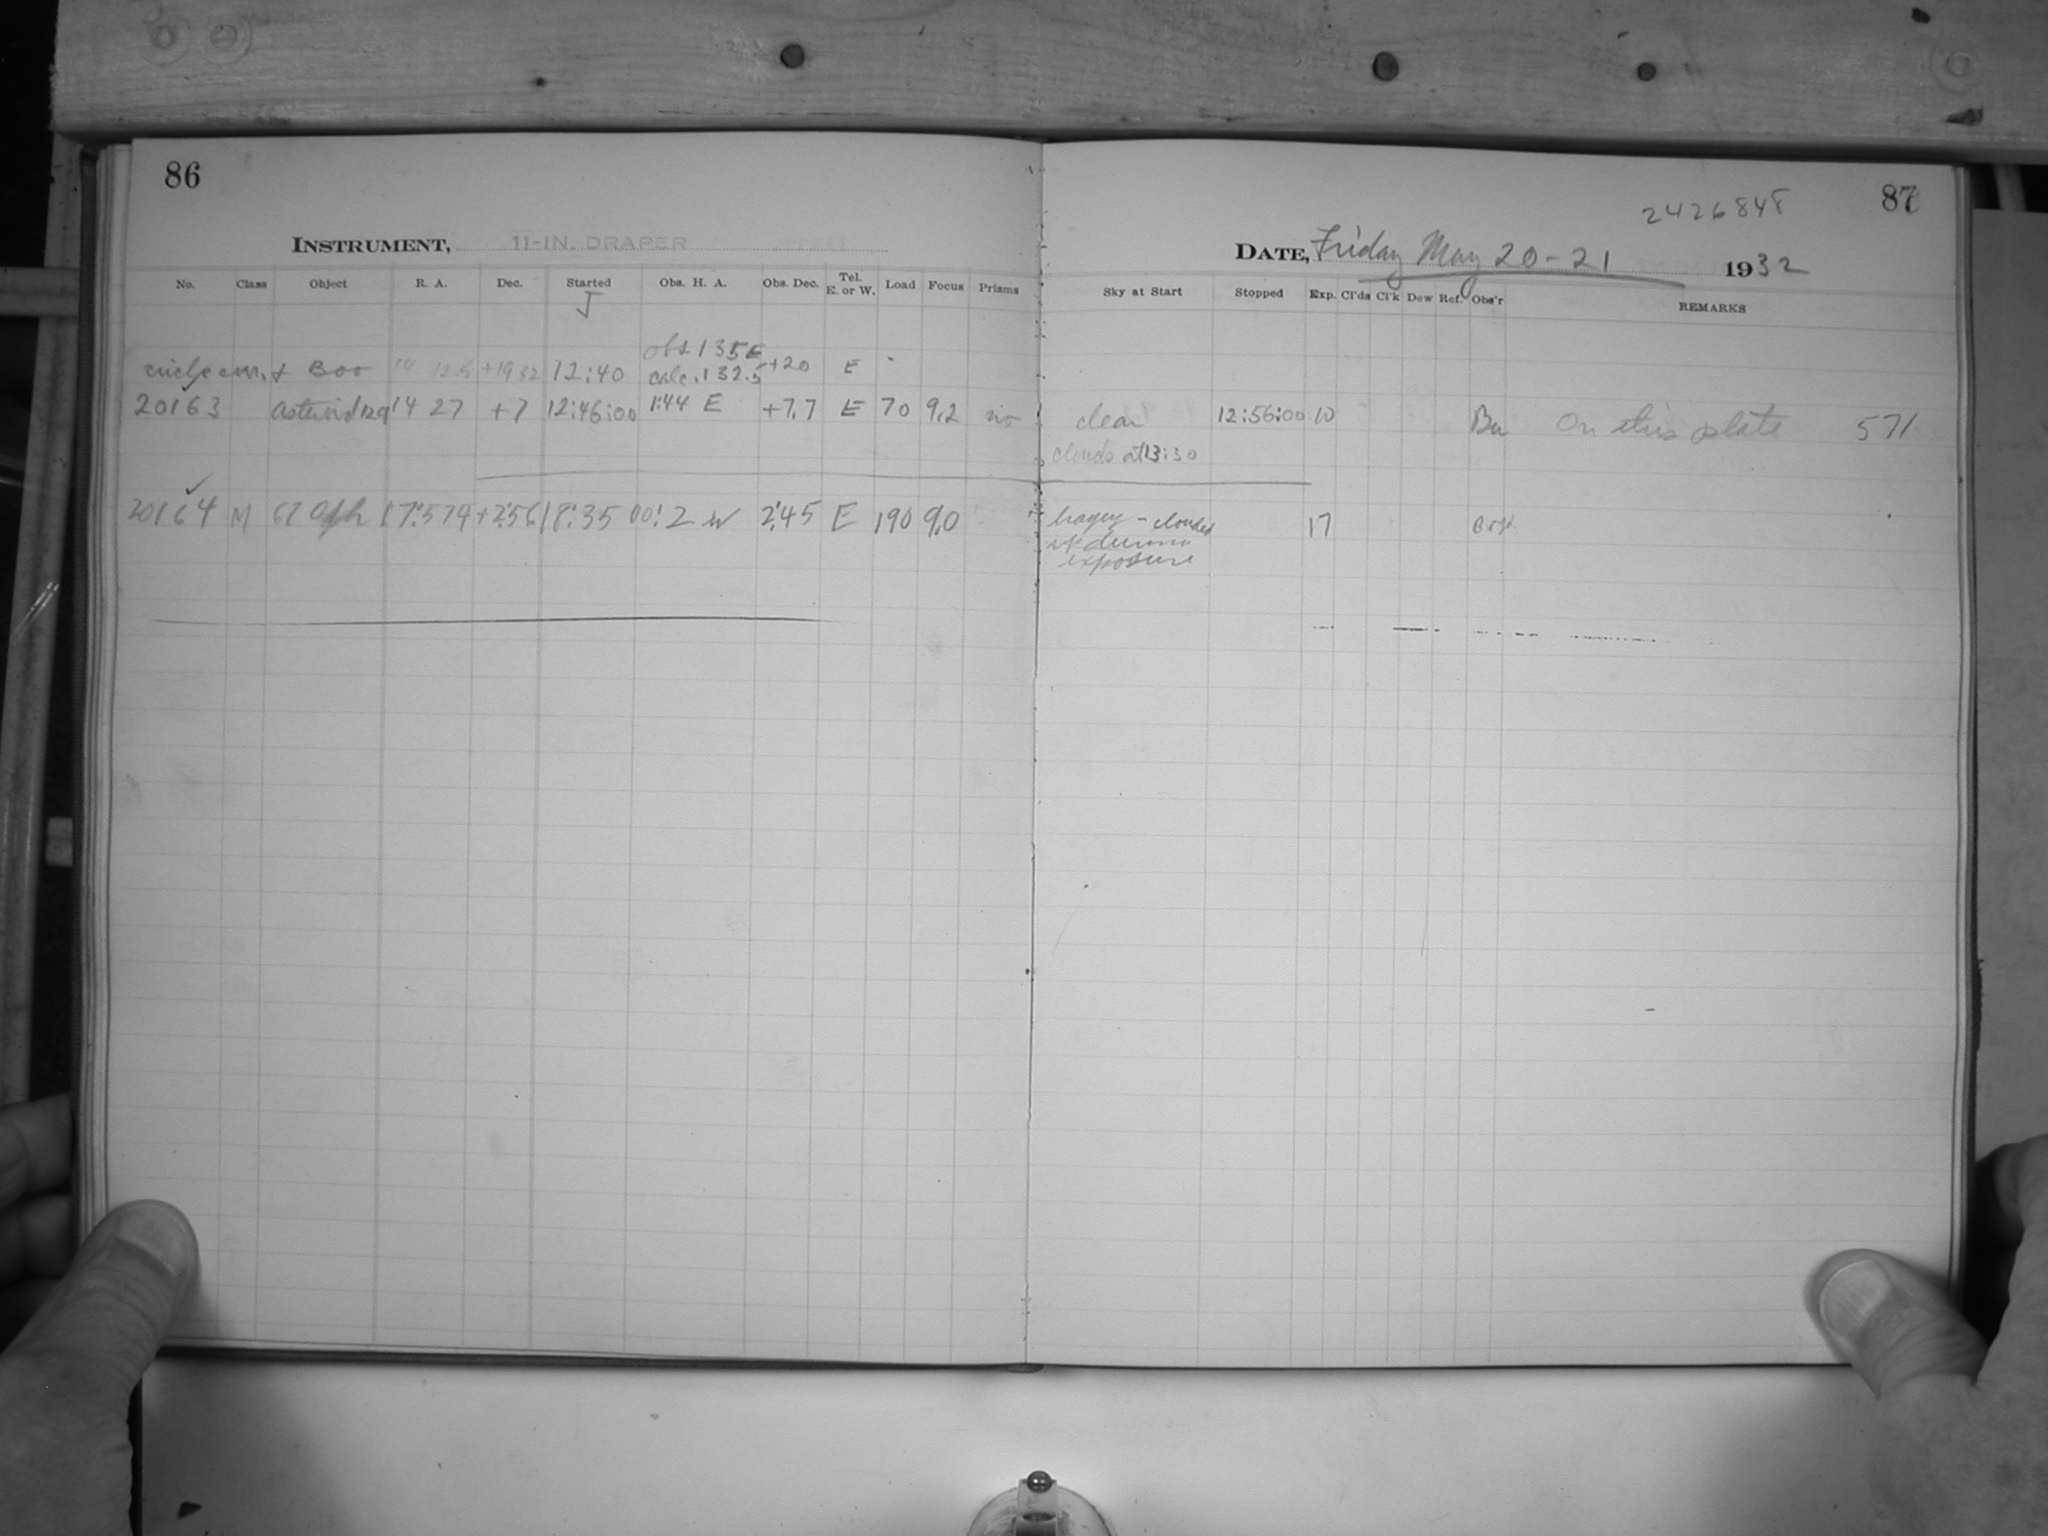 86
INSTRUMENT, 11-IN. DRAPER
No. Class Object R. A. Dec. Started Obs. H. A. Obs. Dec. Tel. E. or W. Load Focus Prisms
J
obs 1 35 E
circle com. α Boo 14 12.5 +19 32 12:40 calc. 1 32.5 +20 E
20163 asteroid 14 27 +7 12:46:00 1:44 E +7.7 E 70 9.2 no
20164 M 67 Oph 17:57.4 +2:56 18:35 00:2 W 2:45 E 190 9.0
2426848 87
DATE, Friday May 20-21 1932
Sky at Start Stopped Exp. Cl'ds Cl'k Dew Ref. Obs'r REMARKS
clear 12:56:00 10 Bu On this plate 571
clouds at 13:30
hazy - clouded 17
up during
exposure